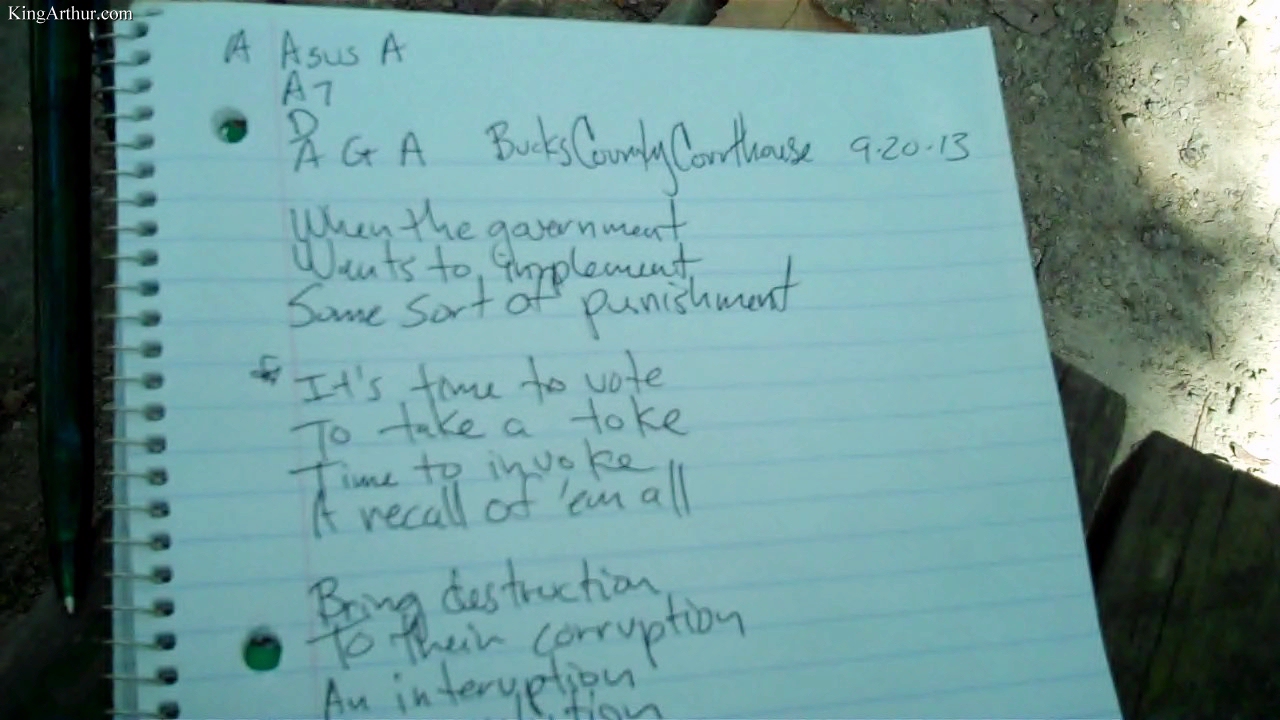 KingArthur.com
A Asus A
A7
D
A G A BucksCountyCourthouse 9.20.13
When the government
Wants to implement
Some sort of punishment
* It's time to vote
To take a toke
Time to invoke
A recall of 'em all
Bring destruction
To their corruption
An interuption